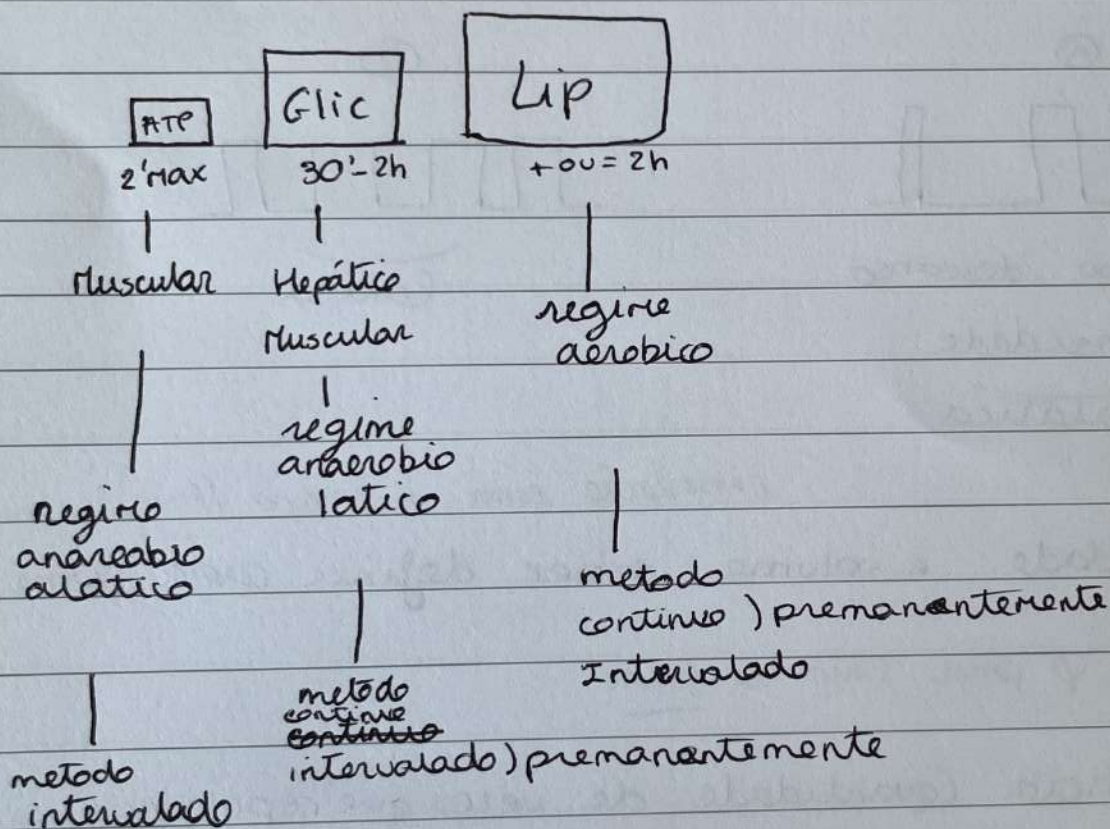 ATP
2' Max
Muscular
regime
anareabio
alatico
metodo
intervalado
Glic
30'-2h
Hepático
Muscular
regime
anaerobio
latico
metodo
continuo
continuo
intervalado) premanantemente
Lip
+ ou = 2h
regime
aérobico
metodo
continuo ) premanantemente
Intervalado